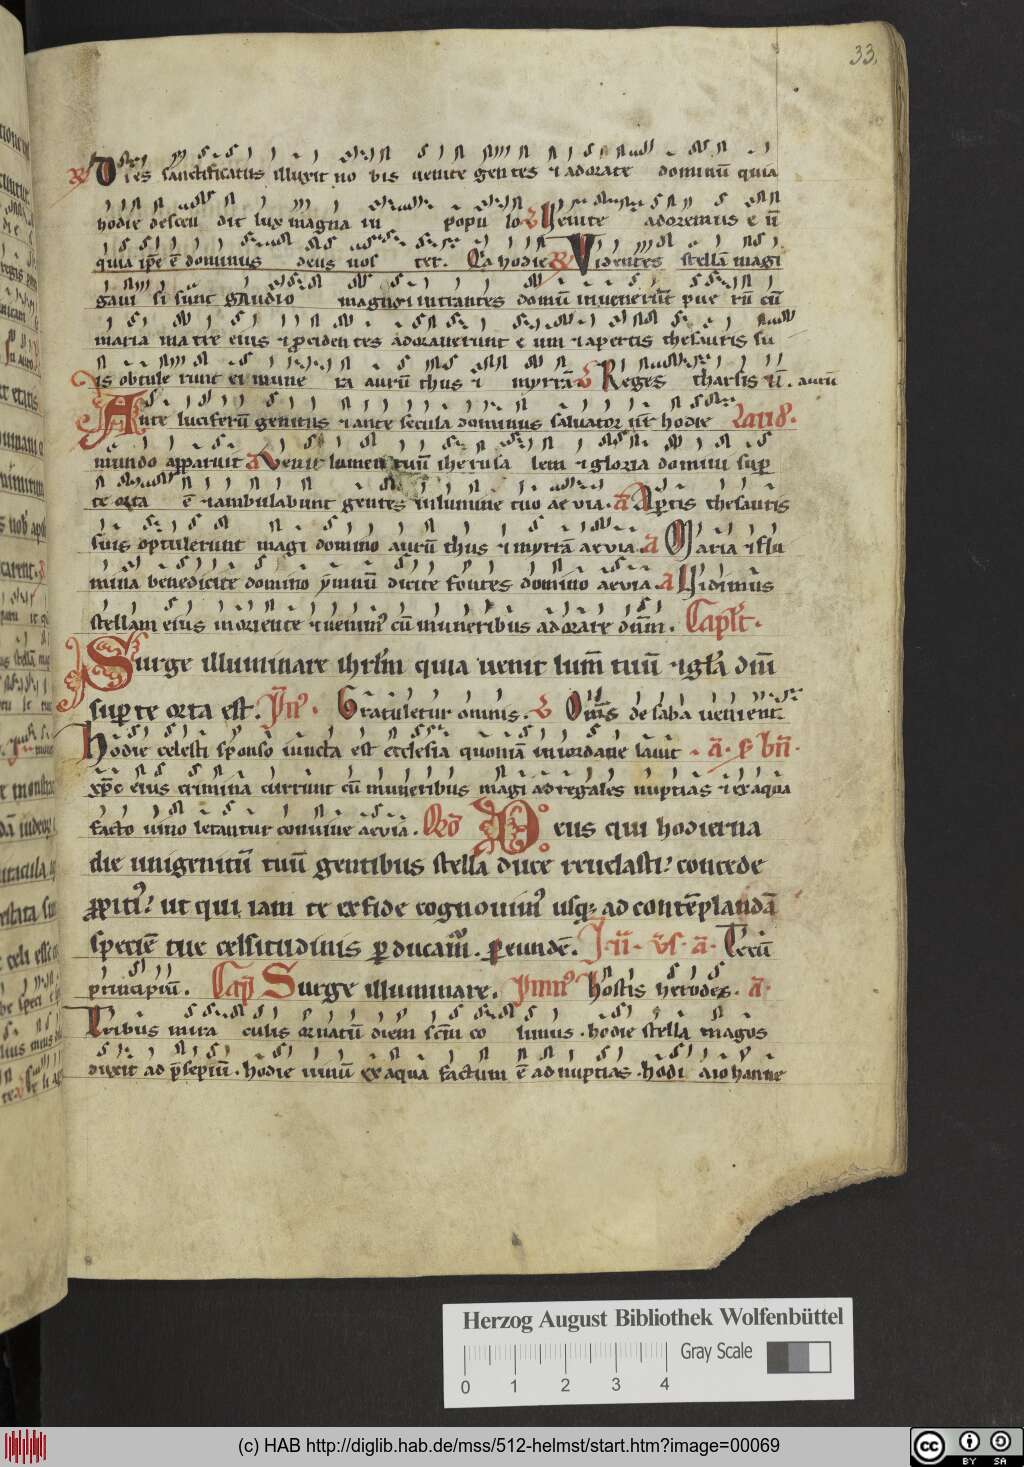 33.
R Dies sanctificatus illuxit no bis uenite gentes ⁊ adorate dominū quia
hodie descen dit lux magna in popu lo V Uenite adoremus eū
quia ip̄e ē dominus deus nos ter. Q̄a hodie R Videntes stellā magi
gaui si sunt gaudio magno ⁊ intrantes domū inuenerūt pue rū cū
maria matre eius ⁊ ꝓciden tes adorauerunt e um ⁊ apertis thesauris su
is obtule runt ei mune ra aurū thus ⁊ myrrā V Reges tharsis ⁊ . aurū
Ante luciferū genitus ⁊ ante secula dominus saluator nr̄ hodie Laud.
mundo apparuit a Uenit lumen tuū iherusa lem ⁊ gloria domini suꝑ
te orta ē ⁊ ambulabunt gentes in lumine tuo aeuia. a Aꝑtis thesauris
suis optulerunt magi domino aurū thus ⁊ myrrā aeuia. a Maria ⁊ flu
mina benedicite domino ẏmnū dicite fontes domino aeuia. a Uidimus
stellam eius in oriente ⁊ uenimꝰ cū muneribus adorare dn̄m. Capl̄t.
Surge illuminare ihrl̄m quia uenit lum̄ tuū ⁊ gl̄a dn̄i
suꝑ te orta est. Gratuletur omnis. V Om̄s de saba uenient
Hodie celesti sponso iuncta est ecclesia quoniā in iordane lauit
xp̄c eius crimina currunt cū muneribus magi ad regales nuptias ⁊ ex aqua
facto uino letantur conuiue aeuia. Or̄o Deus qui hodierna
die unigenitū tuū gentibus stella duce reuelasti. concede
ꝓpitiꝰ. ut qui iam te ex fide cognouimꝰ usqꝫ ad contēplandā
speciē tue celsitudinis ꝑducamr̄. ꝑ eundē. Tecū
principiū. Cap̄ Surge illuminare. Hostis herodes. a
Tribus mira culis ornatū diem sc̄m co limus. hodie stella magos
duxit ad p̄sepiū. hodie uinū ex aqua factum ē ad nuptias. hodi a iohanne
Herzog August Bibliothek Wolfenbüttel
Gray Scale
0 1 2 3 4
(c) HAB http://diglib.hab.de/mss/512-helmst/start.htm?image=00069
cc BY SA